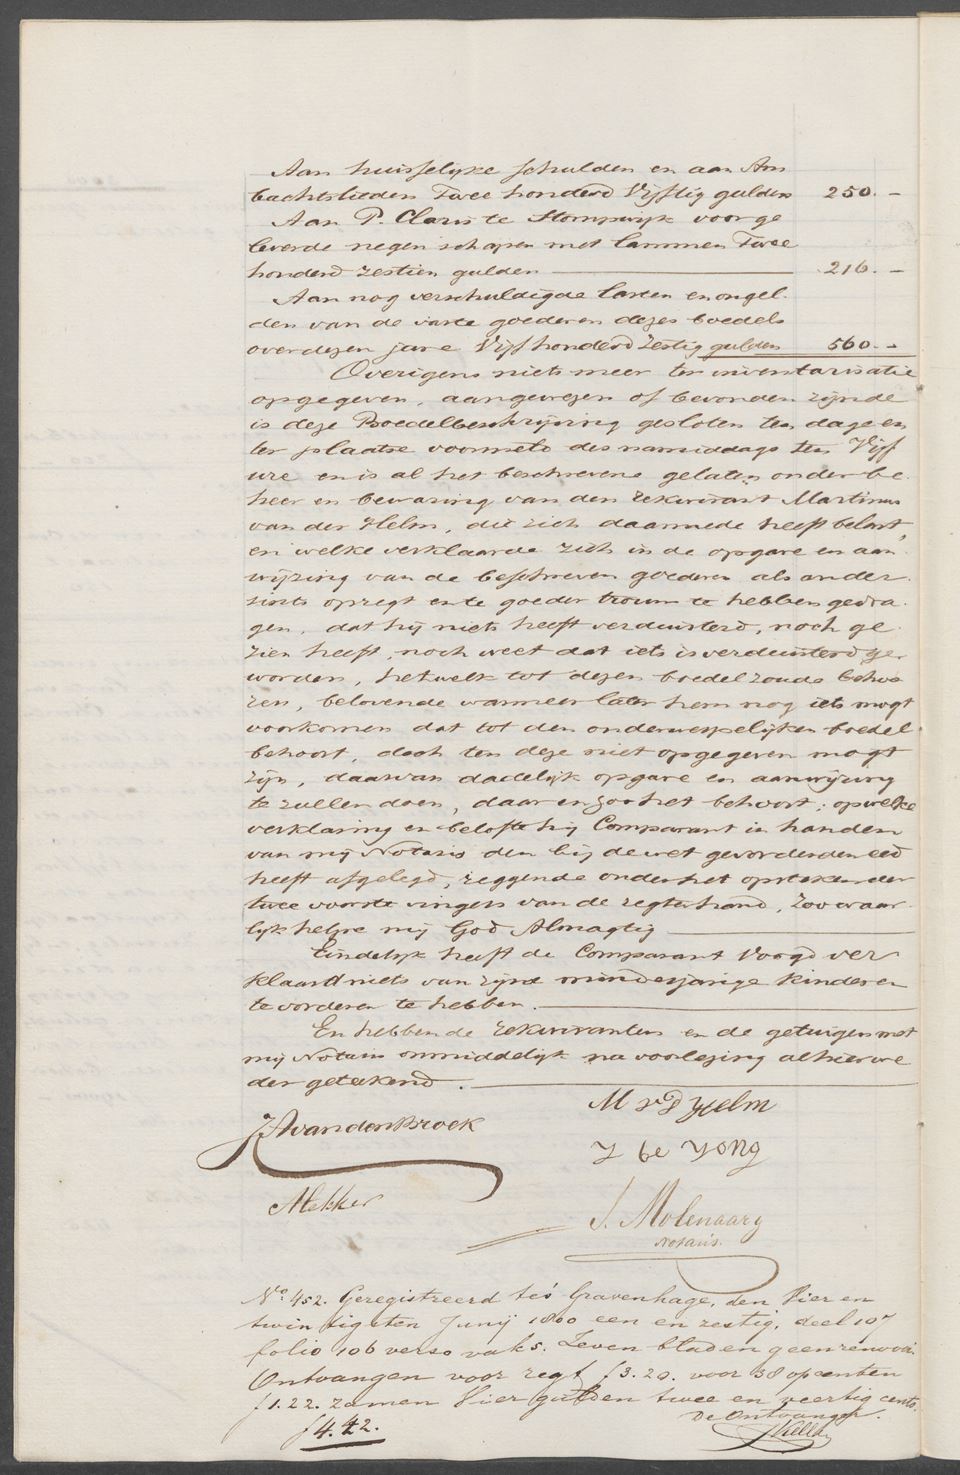 Aan huisselyke schulden en aan Am
bachtslieden Twee honderd Vijftig gulden 250.-
Aan P. Claris te Stompwyk voor ge
leverde negen schapen met lammen Twee
honderd zestien gulden 216.-
Aan nog verschuldigde lasten en ongel-
den van de vaste goederen dezes boedels
over dezen jare Vijf honderd zestig gulden 560.-
Overigens niets meer ter inventarisatie
opgegeven, aangewezen of bevonden zijnde
is deze Boedelbeschrijving gesloten ten dage en
ter plaatse voormeld des namiddags ten Vijf
ure en is al het beschrevene gelaten onder be-
heer en bewaring van den rekwirant Martinus
van der Helm, die zich daarmede heeft belast,
en welke verklaarde zich in de opgave en aan-
wijzing van de beschreven goederen als ander-
sints opregt en te goeder trouw te hebben gedra-
gen, dat hij niets heeft verduisterd, noch ge-
zien heeft, noch weet dat iets is verduisterd ge-
worden, hetwelk tot dezen boedel zoude behoo
ren, belovende wanneer later hem nog iets mogt
voorkomen dat tot den onderwerpelijken boedel
behoort, doch ten deze niet opgegeven mogt
zijn, daarvan dadelijk opgave en aanwijzing
te zullen doen, daar en zoo het behoort; op welke
verklaring en belofte hij Comparant in handen
van mij Notaris den bij de wet gevorderden eed
heeft afgelegd, zeggende onder het opsteken der
twee voorste vingers van de regterhand, Zoo waar-
lijk helpe mij God Almagtig
Eindelijk heeft de Comparant Voogd ver
klaard niets van zijne minderjarige kinderen
te vorderen te hebben.
En hebben de rekwiranten en de getuigen met
mij Notaris onmiddelijk na voorlezing alhier we
der getekend.
M vD Helm
JA van den Broek
Y de Yong
A Hekker
J. Molenaar
Notaris.
No. 452. Geregistreerd te s' Gravenhage, den Vier en
twintigsten Junij 1860 een en zestig, deel 107
folio 106 verso vak 5. Zeven bladen geen renvooi.
Ontvangen voor regt f 3.20. voor 38 opcenten
f 1.22. zamen Vier gulden twee en veertig cents.
De Ontvanger.
f 4.42.